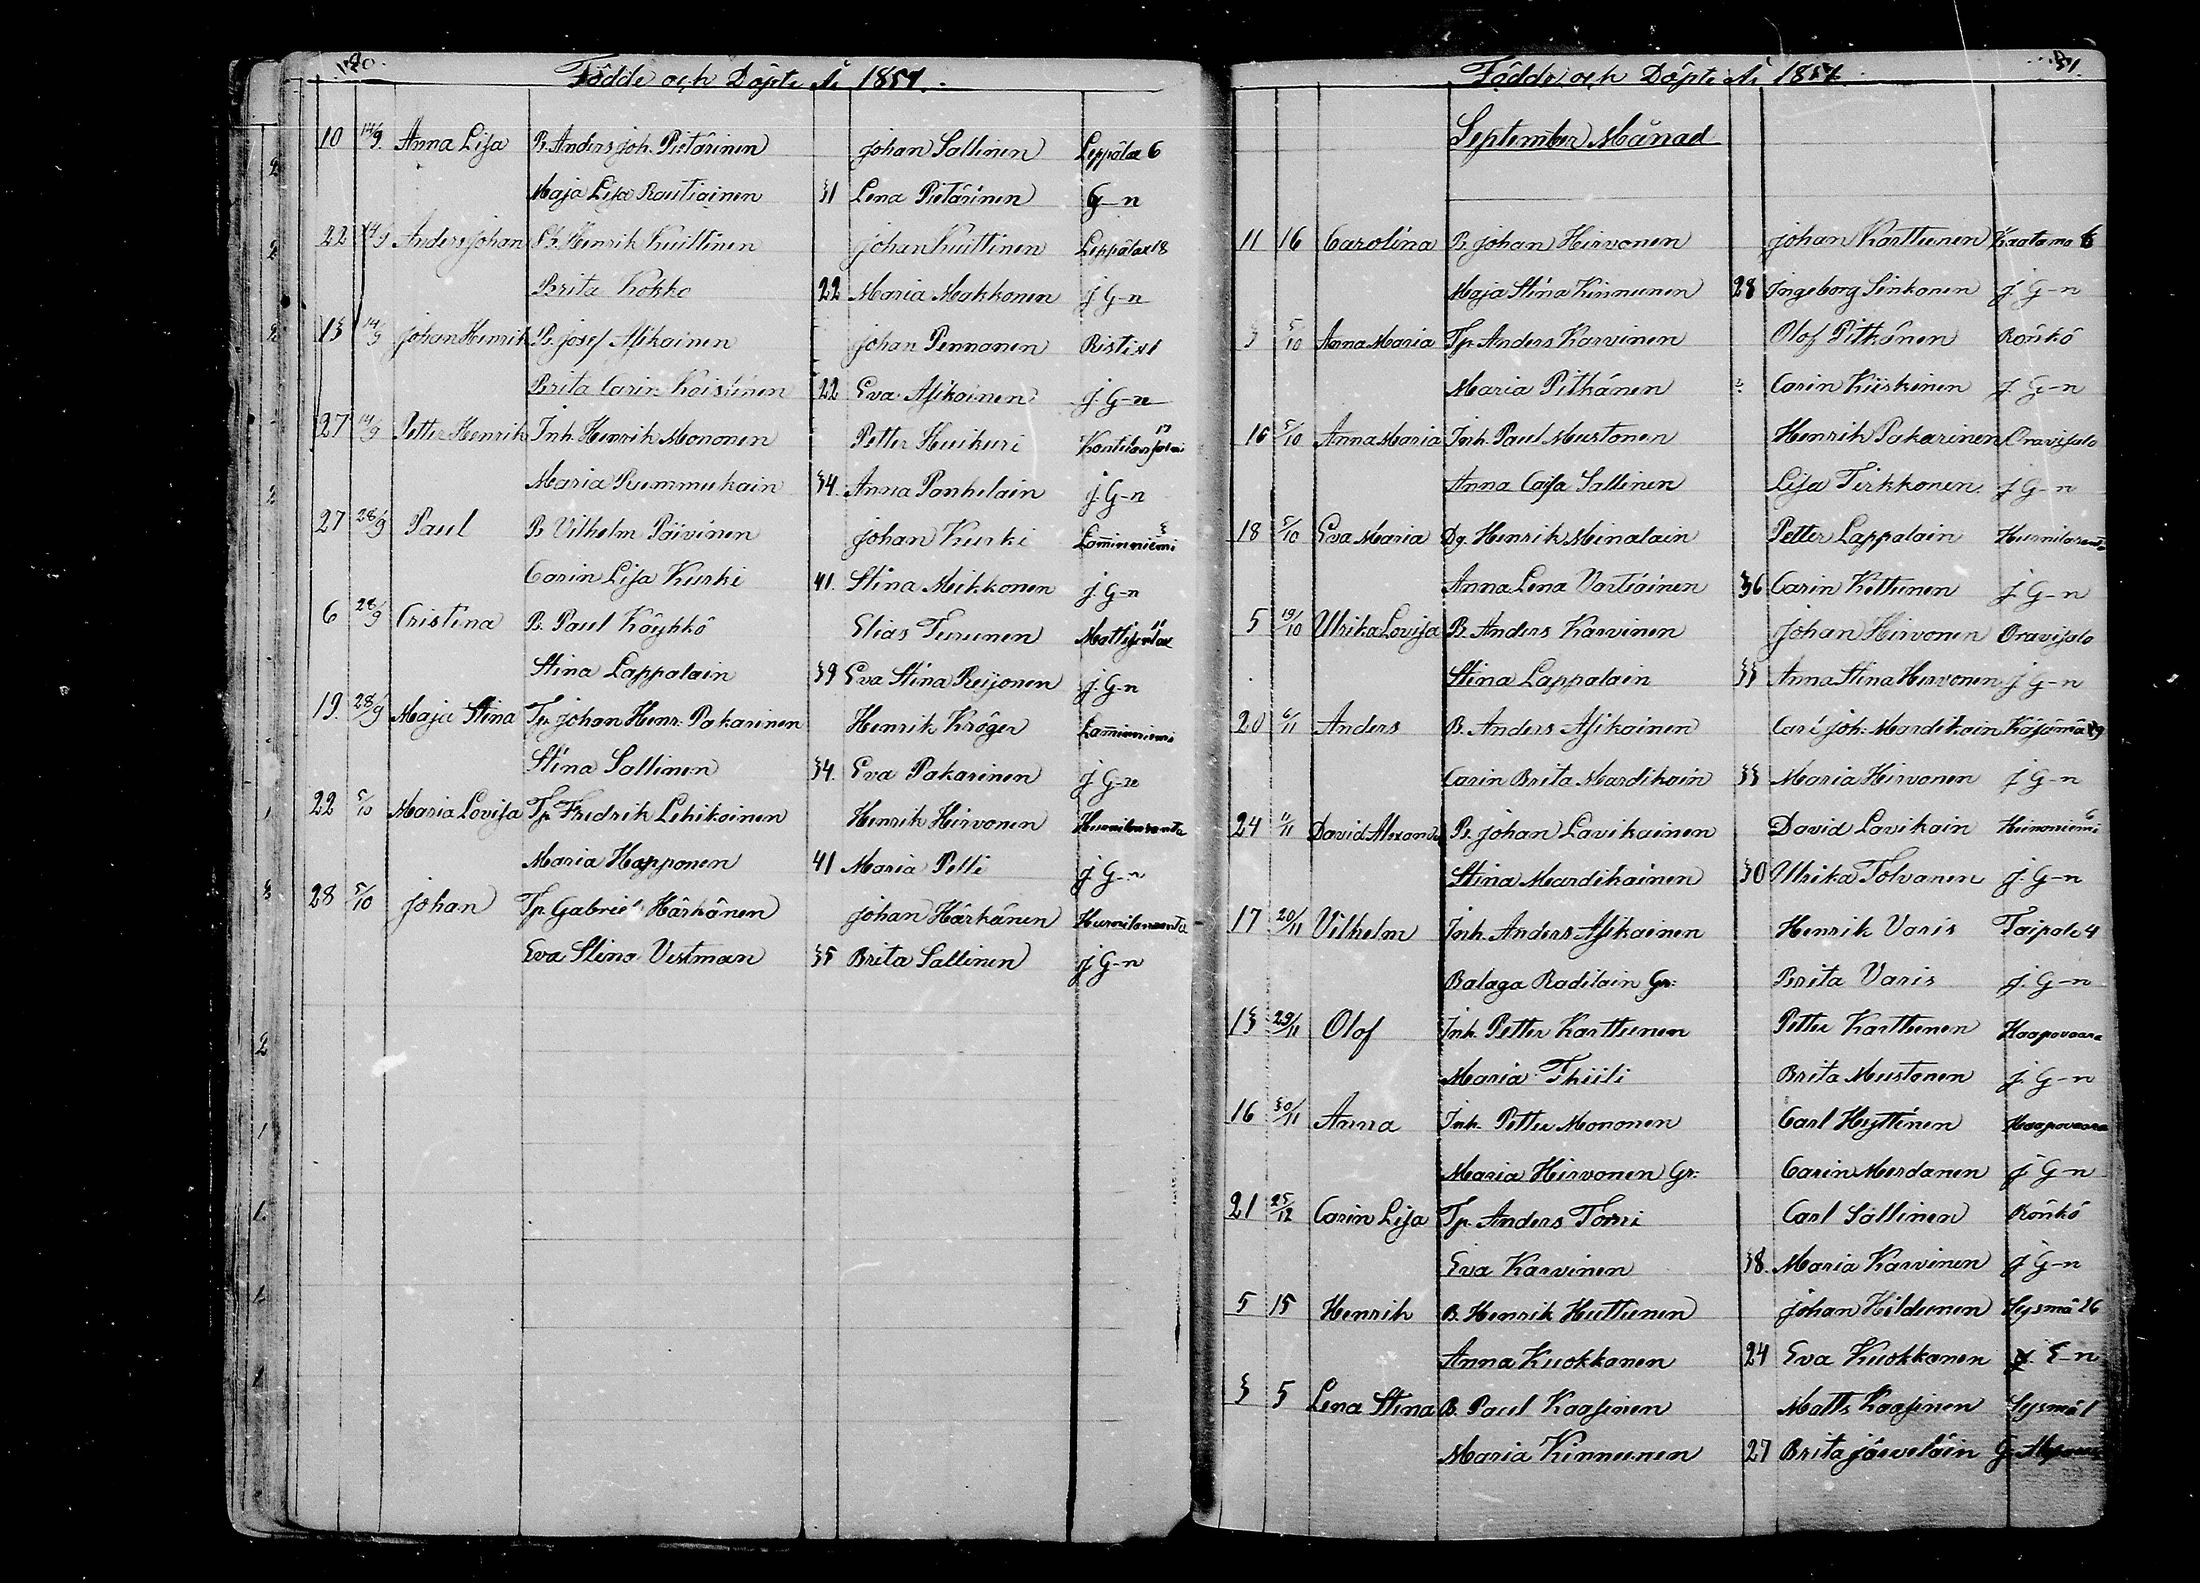 Födde och Döpte År 1851.
10 14/9 Anna Lisa B. Anders Joh. Pietärinen Johan Sallinen Leppälax 6
Maja Lisa Rautiainen 31 Lena Pietärinen G-n
22 14/9 Anders Johan B. Henrik Kuittinen Johan Kuittinen Leppälax 18
Brita Kokko 22 Maria Makkonen J. G-n
13 14/9 Johan Henrik B. Josef Asikainen Johan Pennanen Risti 1
Brita Carin Koistinen 22 Eva Asikainen J. G-n
27 14/9 Petter Henrik Inh. Henrik Mononen Petter Huikuri Kontilansalmi
Maria Rummukain 34. Anna Panhelain J. G-n
27 28/9 Paul B Vilhelm Päivinen Johan Kurki Lamminniemi
Carin Lisa Kurki 41. Stina Mikkonen J. G-n
6 28/9 Cristina B. Paul Käykkö Elias Turunen
Stina Lappalain 39 Eva Stina Reijonen J. G-n
19. 28/9 Maja Stina Tp. Johan Henr. Pakarinen Henrik Kröger Lamminniemi
Stina Sallinen 34. Eva Pakarinen J. G-n
22 5/10 Maria Lovisa Tp. Fredrik Lihikoinen Henrik Hirvonen Hurmilanranta
Maria Happonen 41 Maria Pelli J. G-n
28 5/10 Johan Tp. Gabriel Härkänen Johan Härkänen Hurmilanranta
Eva Stina Vestman 35 Brita Sallinen J. G-n
Födde och Döpte År 1851. 31.
September Månad
11 16 Carolina B. Johan Hirvonen Johan Karttunen Kaatamo 6
Maja Stina Kinnunen 28 Ingeborg Sinkonen J. G-n
3 5/10 Anna Maria Tp. Anders Karvinen Olof Pitkänen Rönkö
Maria Pitkänen Carin Kiiskinen J. G-n
16 5/10 Anna Maria Inh. Paul Mustonen Henrik Pakarinen Oravisalo
Anna Caisa Sallinen Lisa Tirkkonen J. G-n
18 5/10 Eva Maria Dg. Henrik Minalain Petter Lappalain Hurmilarant
Anna Lena Vartiainen 36 Carin Kettunen J. G-n
5 19/10 Ulrika Lovisa B. Anders Karvinen Johan Hirvonen Oravisalo
Stina Lappalain 33 Anna Stina Hirvonen J. G-n
20 6/11 Anders B. Anders Asikainen Carl Joh. Mardikain Käsämä 19
Carin Brita Mardikain 33 Maria Hirvonen J. G-n
24 11/11 David Alexand B. Johan Lavikainen David Lavikain Heinoniemi 6
Stina Mardikainen 30 Ulrika Tolvanen J. G-n
17 20/11 Vilhelm Inh. Anders Asikainen Henrik Varis Taipale 4
Balaga Radilain Gr: Brita Varis J. G-n
13 29/11 Olof Inh. Petter Karttunen Petter Karttunen Haapovaara
Maria Thiili Brita Mustonen J. G-n
16 30/11 Anna Inh. Petter Mononen Carl Hyttinen Haapovaara
Maria Hirvonen Gr: Carin Merdanen J G-n
21 25/12 Carin Lisa Tp. Anders Torni Carl Sallinen Rönkö
Eva Karvinen 38. Maria Karvinen J G-n
5 15 Henrik B. Henrik Huttunen Johan Hildunen Sysmä 26
Anna Kuokkanen 24 Eva Kuokkanen J. E-n
3 5 Lena Stina B. Paul Kaasinen Matts Kaasinen Sysmä 1
Maria Kinnunen 27 Brita Järveläin